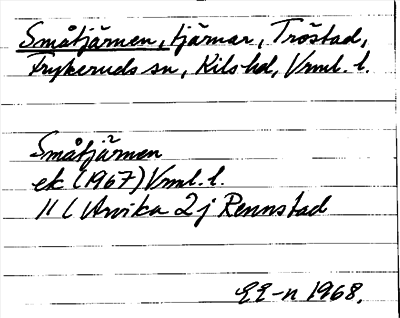 Småtjärnen, tjärnar, Tröstad,
Frykeruds sn, Kils hd, Vrml. l.
Småtjärnen
ek (1967) Vrml. l.
11 C Arvika 2 j Rennstad
EE-n 1968.